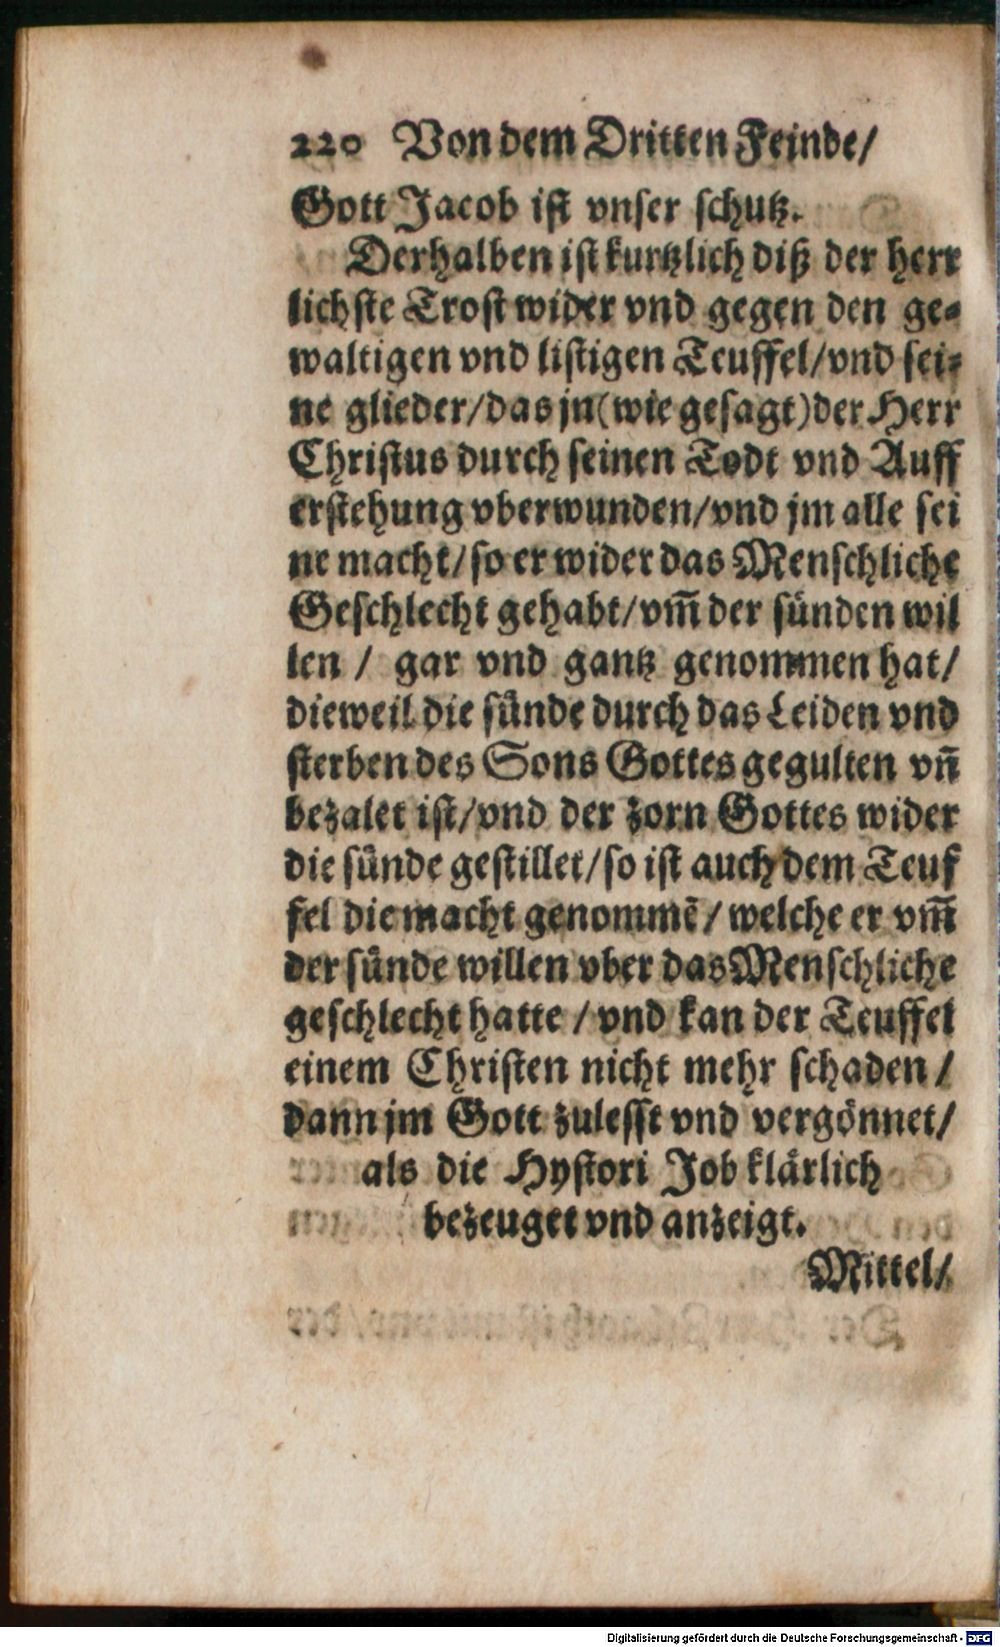 220 Von dem Dritten Feinde/
Gott Jacob ist vnser schutz.
Derhalben ist kurtzlich diß der herr
lichste Trost wider vnd gegen den ge-
waltigen vnd listigen Teuffel/vnd sei-
ne glieder/das jn(wie gesagt)der Herr
Christus durch seinen Todt vnd Auff
erstehung vberwunden/vnd jm alle sei
ne macht/so er wider das Menschliche
Geschlecht gehabt/vm̃ der sünden wil
len / gar vnd gantz genommen hat/
dieweil die sünde durch das Leiden vnd
sterben des Sons Gottes gegulten vñ
bezalet ist/vnd der zorn Gottes wider
die sünde gestillet/so ist auch dem Teuf
fel die macht genommẽ/welche er vm̃
der sünde willen vber das Menschliche
geschlecht hatte /vnd kan der Teuffel
einem Christen nicht mehr schaden/
dann jm Gott zulesst vnd vergönnet/
als die Hystori Job klärlich
bezeuget vnd anzeigt.
Mittel/
Digitalisierung gefördert durch die Deutsche Forschungsgemeinschaft - DFG